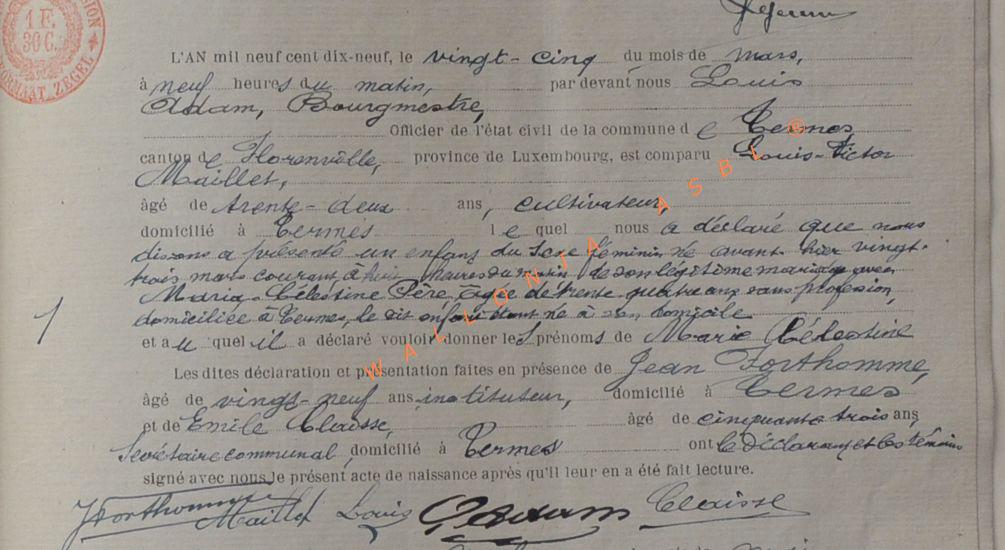 1 F.
30 C.
ZEGEL
L'AN mil neuf cent dix-neuf, le vingt-cinq du mois de mars,
à neuf heures du matin, par devant nous Louis
Adam, Bourgmestre,
Officier de l'état civil de la commune de Termes,
canton de Florenville, province de Luxembourg, est comparu Louis-Victor
Maillet,
âgé de trente-deux ans, cultivateur,
domicilié à Termes lequel nous a déclaré que nous
disons a présenté un enfant du sexe féminin né avant-hier vingt-
trois mars courant, à huit heures du matin de son légitime mariage avec
Maria-Célestine Père, âgée de trente quatre ans, sans profession,
domiciliée à Termes, le dit enfant étant né à son domicile
et au quel il a déclaré vouloir donner les prénoms de Marie Célestine
Les dites déclaration et présentation faites en présence de Jean Forthomme,
âgé de vingt-neuf ans, instituteur, domicilié à Termes
et de Emile Claisse, âgé de cinquante trois ans,
Secrétaire communal, domicilié à Termes ont le déclarant et les témoins
signé avec nous le présent acte de naissance après qu'il leur en a été fait lecture.
JForthomme Maillet Louis Adam Claisse
WALLONIA ASBL ©